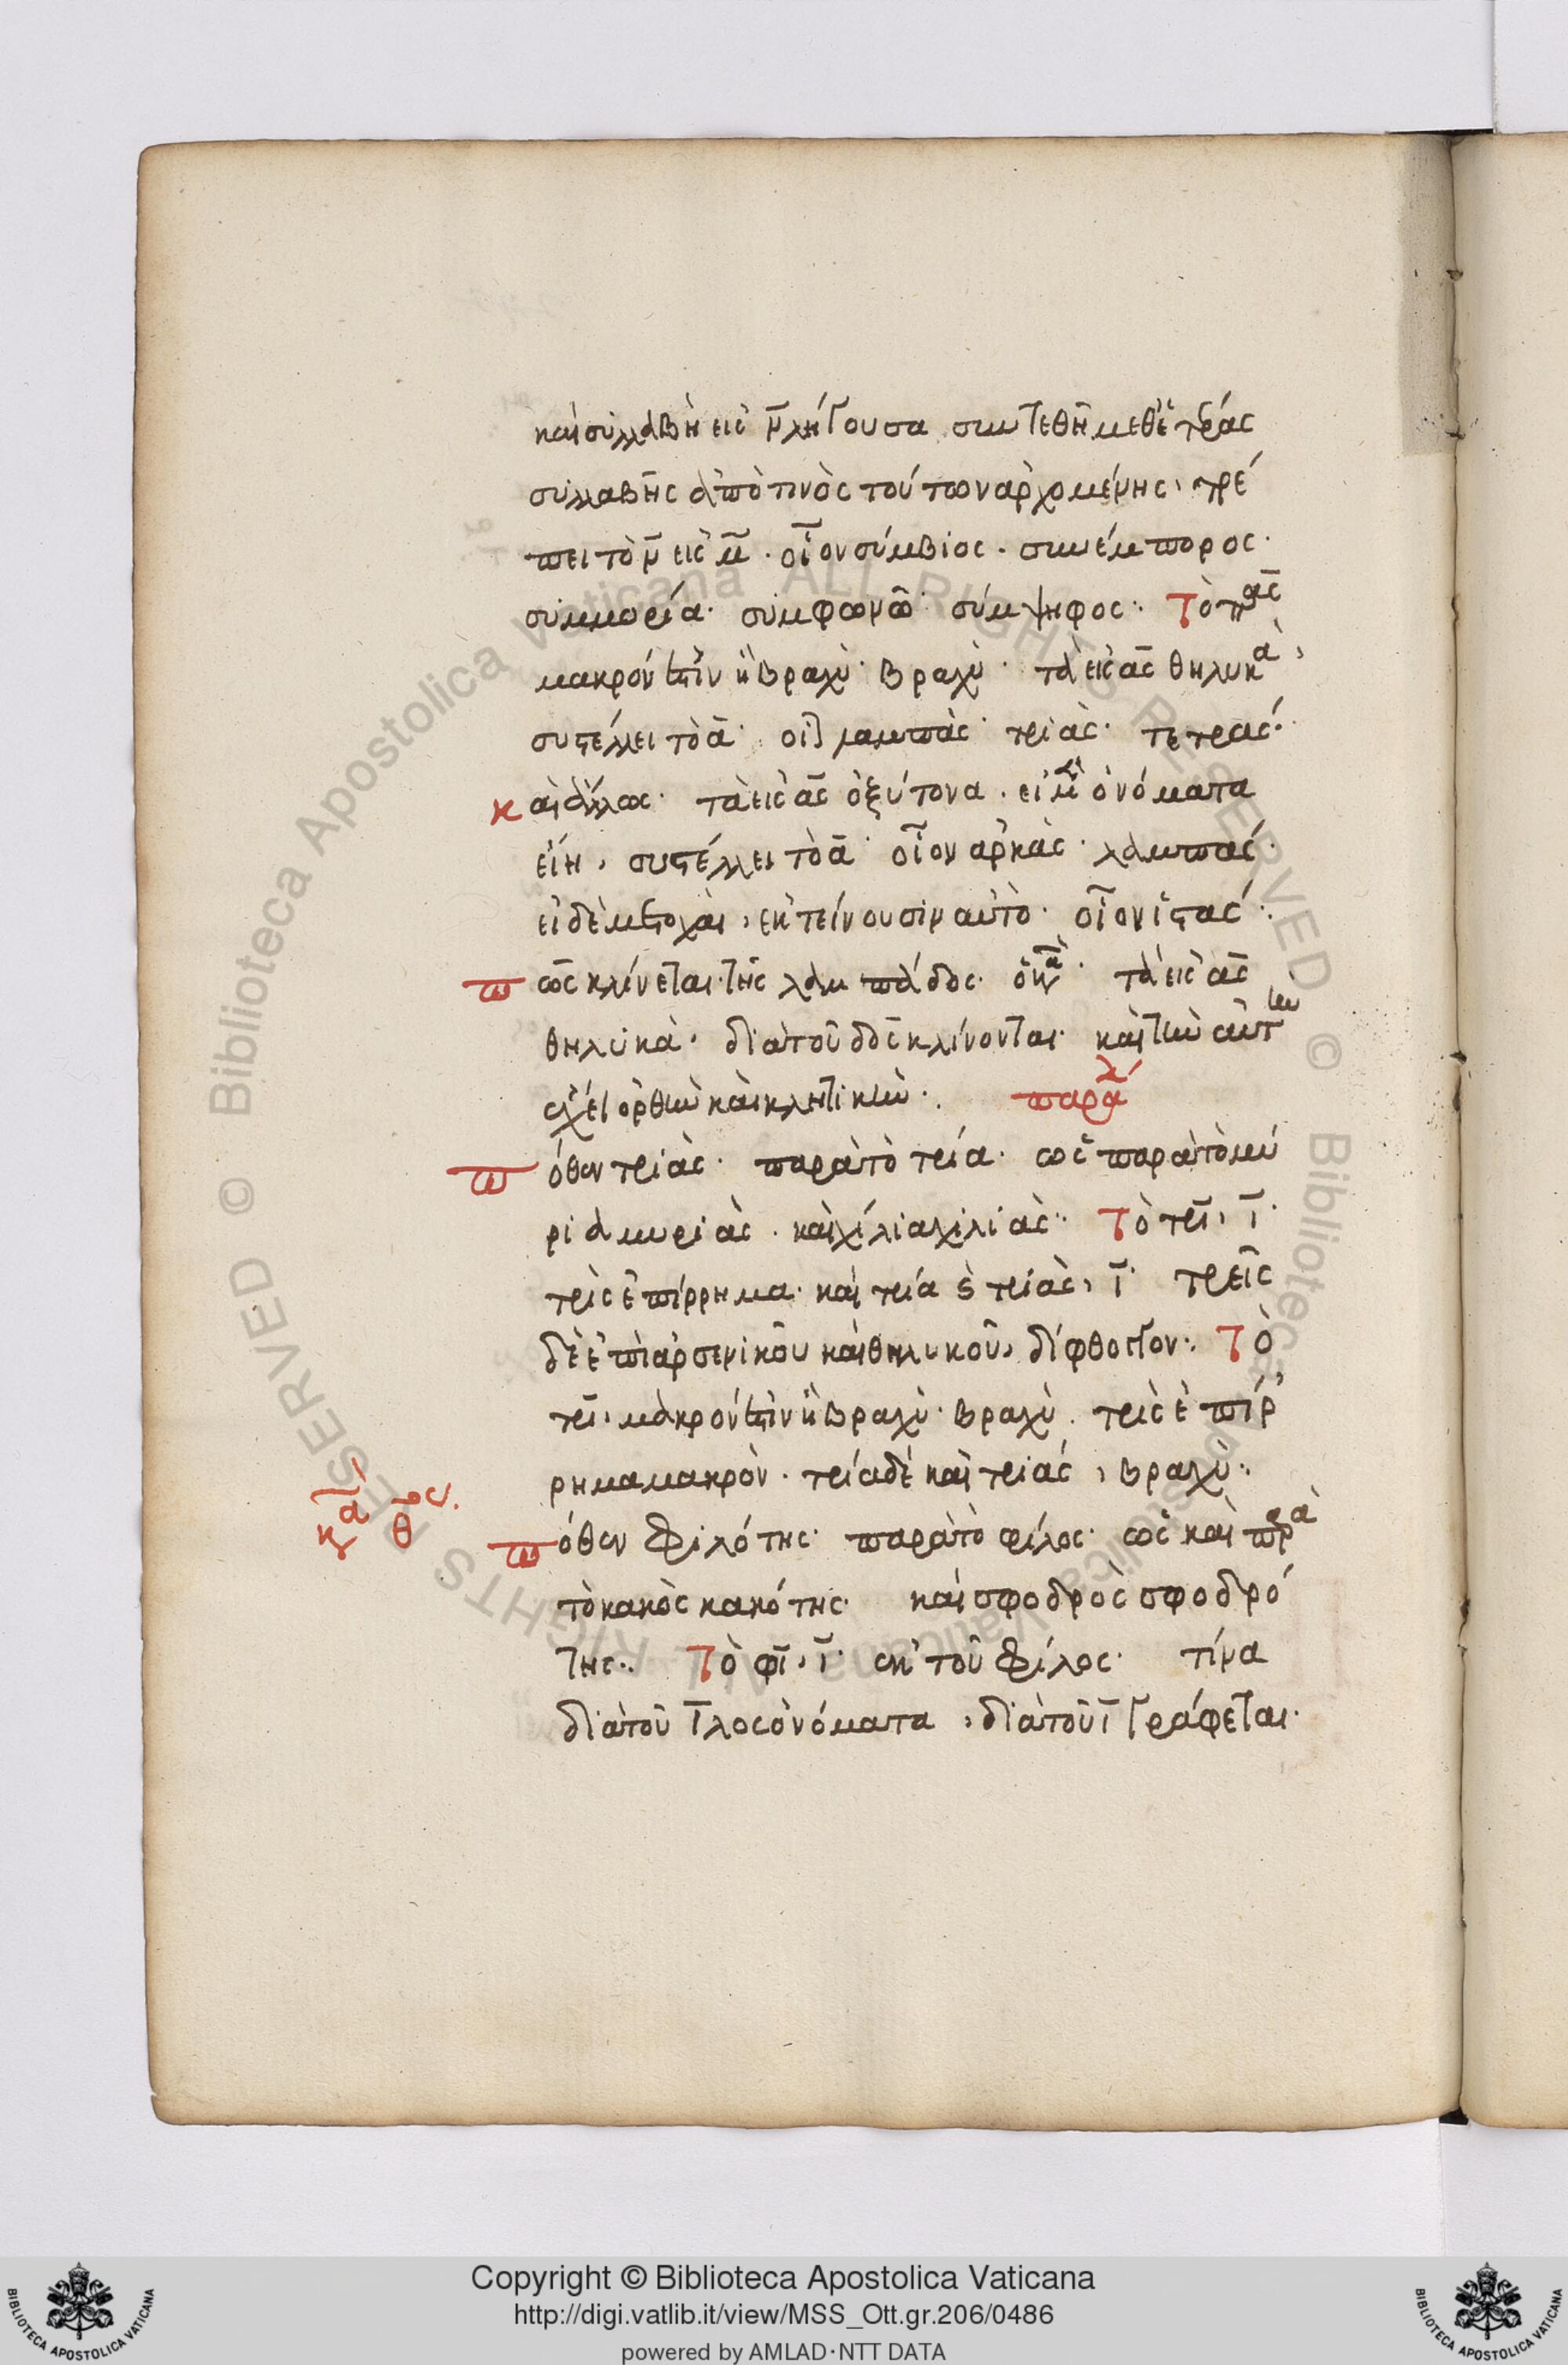 καὶ συλλαβὴ εἰς ν̄ λήγουσα συντεθῇ μεθ' ἑτέρας
συλλαβῆς ἀπὸ τινὸς τούτων ἀρχομένης, τρέ
πει τὸ ν̄ εἰς μ̄. οἷον σύμβιος. συνέμπορος.
συμμορία. συμφωνῶ. σύμψηφος:. Τὸ πας
μακρόν ἐστιν ἢ βραχύ· βραχύ. τὰ εἰς ας θηλυκὰ,
συστέλλει τὸ ᾱ. οἷον λαμπὰς. τριὰς. τετράς:.
Καὶ ἄλλως. τὰ εἰς ας ὀξύτονα. εἰ μὲν ὀνόματα
εἴη, συστέλλει τὸ ᾱ. οἷον ἀρκὰς. λαμπάς.
εἰ δὲ μετοχαὶ, ἐκτείνουσιν αὐτὸ. οἷον ἱστάς:.
π ῶς κλίνεται. τῆς λαμπάδος. ὁ κανών. τὰ εἰς ας
θηλυκὰ. διὰ τοῦ δος κλίνονται. καὶ τὴν αὐτὴν
ἔχει ὀρθὴν καὶ κλητικὴν:. παρα
π όθεν τριὰς. παρὰ τὸ τρία. ὡς παρὰ τὸ μύ
ρια μυριὰς. καὶ χίλια χιλιὰς:. Τὸ τρι, ῑ.
τρὶς ἐπίρρημα. καὶ τρία καὶ τριὰς, ῑ. τρεῖς
δὲ ἐπὶ ἀρσενικοῦ καὶ θηλυκοῦ, δίφθογγον:. Τὸ
τρι, μακρόν ἐστιν ἢ βραχύ. βραχύ. τρὶς ἐπίρ
ρημα μακρὸν. τρία δὲ καὶ τριάς, βραχύ:.
π όθεν φιλότης. παρὰ τὸ φίλος. ὡς καὶ παρὰ
τὸ κακὸς κακότης. καὶ σφοδρὸς σφοδρό
της:. Τὸ φι, ῑ. ἐκ τοῦ φίλος. τίνα
διὰ τοῦ ῑλος ὀνόματα, διὰ τοῦ ῑ γράφεται.
Copyright © Biblioteca Apostolica Vaticana
http://digi.vatlib.it/view/MSS_Ott.gr.206/0486
powered by AMLAD·NTT DATA